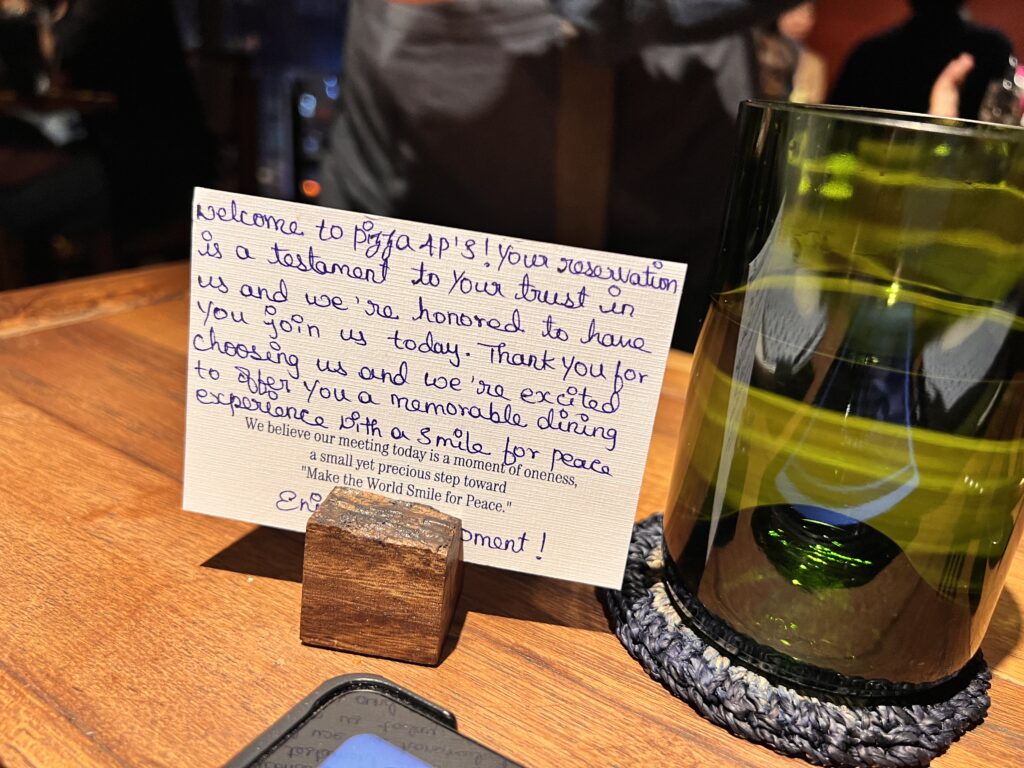 Welcome to Pizza 4P'S! Your reservation
is a testament to your trust in
us and we're honored to have
you join us today. Thank you for
choosing us and we're excited
to offer you a memorable dining
experience with a smile for peace
We believe our meeting today is a moment of oneness,
a small yet precious step toward
"Make the World Smile for Peace."
!